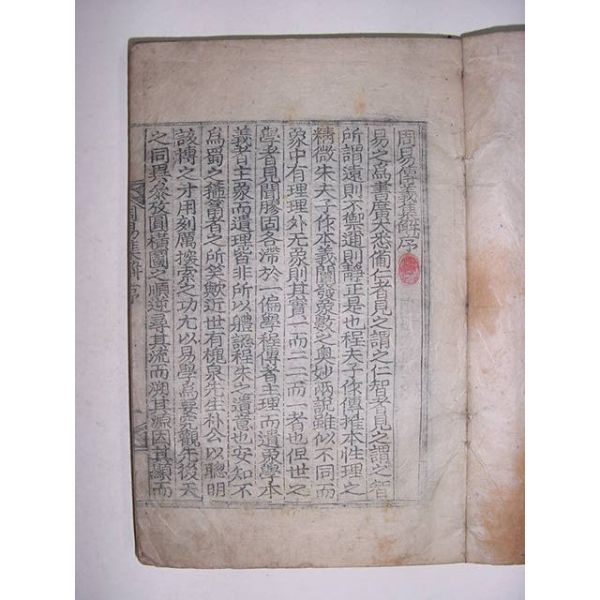 周易傳義集解序
易之爲書廣大悉備仁者見之謂之仁智者見之謂之智
所謂遠則不禦邇則靜正是也程夫子作傳推本性理之
精微朱夫子作本義開發象數之奧妙兩說雖似不同而
象中有理理外无象則其實一而二二而一者也但世之
學者見聞膠固各滯於一偏學程傳者主理而遺象學本
義者主象而遺理皆非所以體認程朱之遺意也安知不
爲蜀之䈰者之所笑歟近世有槐泉先生朴公以聰明
該博之才用刻厲探索之功尤以易學爲緊觀先後天
之同異象放圓橫圖之順逆尋其流而溯其源因其顯而
周易集解序